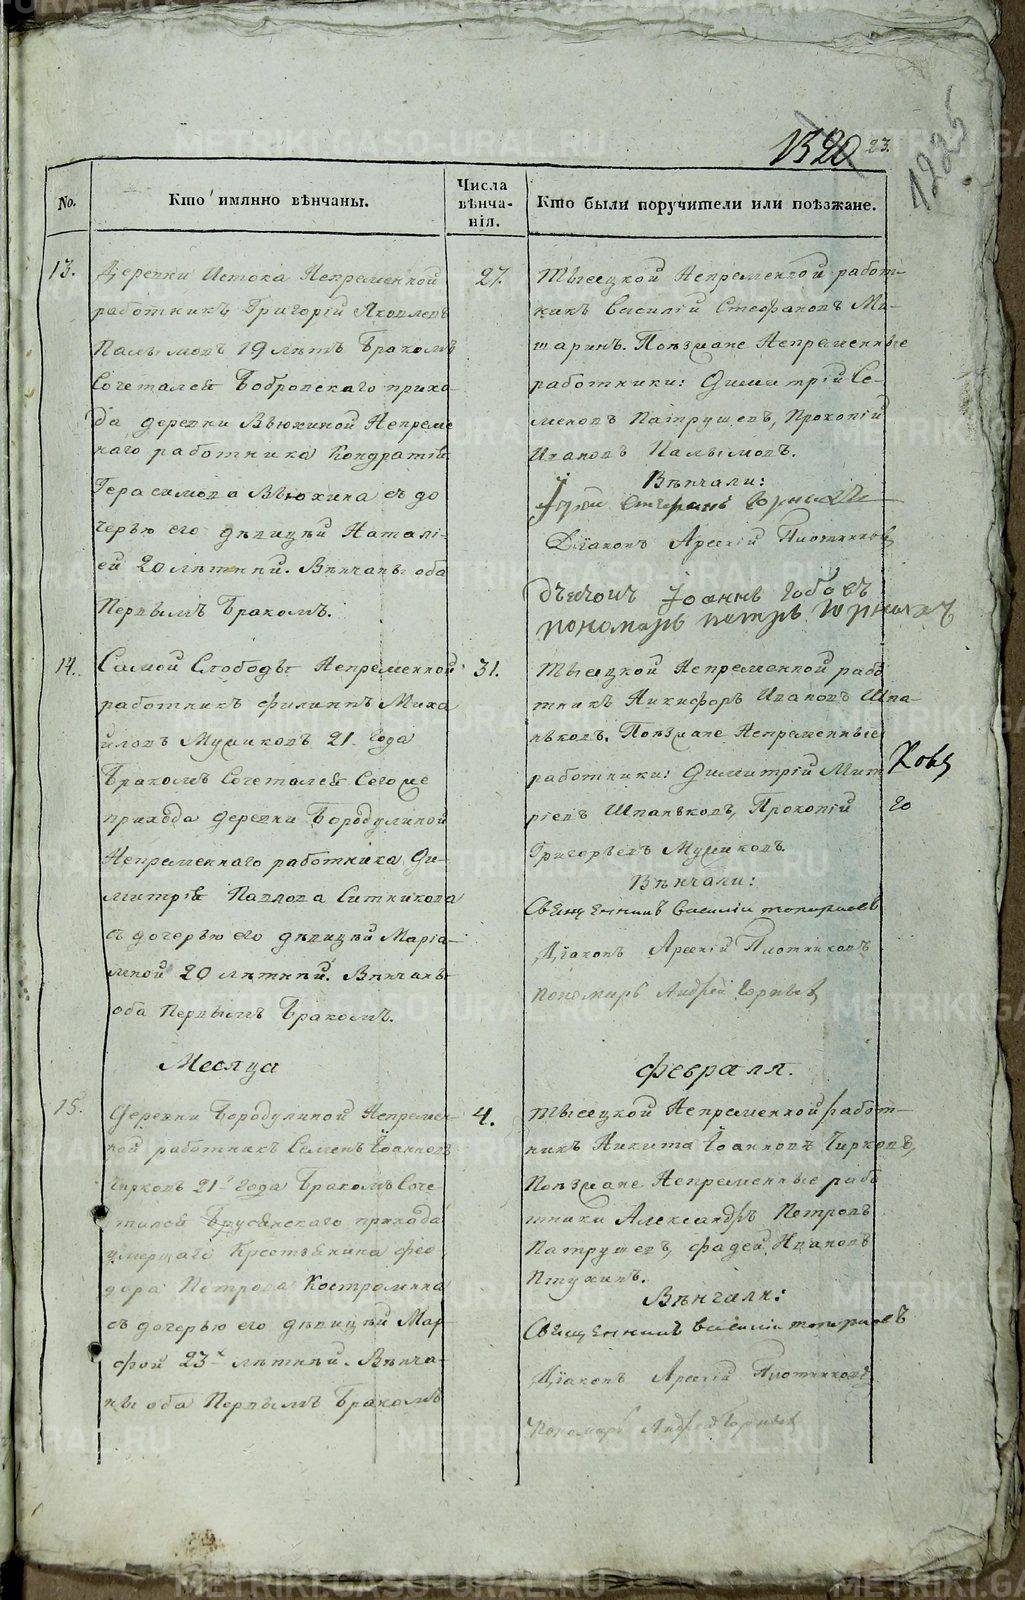 23.
1225
No.
Кто имянно вѣнчаны.
Числа вѣнча-
нія.
Кто были поручители или поѣзжане.
13.
Деревни Истока Непременной
работникъ Григорій Яковлевъ
Палымовъ 19 лѣтъ Бракомъ
Сочетался Бобровскаго прихо-
да деревни Вьюхиной Непреме
ннаго работника Кондратія
Герасимова Вьюхина съ до
черью его дѣвицей Наталі-
ей 20 лѣтней. Вѣнчаны оба
Первымъ Бракомъ.
27.
Тысецкой Непременной работ-
никъ Василій Стефановъ Ма-
шаринъ. Поѣзжане Непременные
работники: Димитрій Се-
меновъ Патрушевъ, Прокопій
Ивановъ Палымовъ.
Вѣнчали:
Іерей Стефанъ
Діаконъ Арсеній Плотниковъ
дьячокъ Іоаннъ
пономарь петръ
14.
Самой Слободы Непременной
работникъ Филиппъ Миха
йловъ Мушковъ 21 года
Бракомъ Сочетался Сегоже
прихода деревни Бородулиной
Непременнаго работника Ди-
митрія Павлова Ситникова
съ дочерью его дѣвицей Маріа-
мной 20 лѣтней. Вѣнчаны
оба Первымъ Бракомъ.
31.
Тысецкой Непременной рабо
тникъ Никифоръ Ивановъ Шпа-
ньковъ. Поѣзжане Непременные
работники: Димитрій Мит
ріевъ Шпаньковъ, Прокопій
Григорьевъ Мушковъ.
Вѣнчали:
Священникъ Василій топорковъ
Діаконъ Арсеній Плотниковъ
Пономарь Андрей
го
Месяца
Февраля.
15.
Деревни Бородулиной Непремен-
ной работникъ Семенъ Іоанновъ
Чирковъ 21 года Бракомъ Соче-
тался Брусянскаго прихода
умершаго Крестьянина Фео
дора Петрова Костромина
съ дочерью его дѣвицей Мар-
фой 23х лѣтней. Вѣнча-
ны оба Первымъ Бракомъ
4.
Тысецкой Непременной работ-
никъ Никита Іоанновъ Чирковъ,
Поѣзжане Непременные рабо
тники Александръ Петровъ
Патрушевъ, Фадей Ивановъ
Птухинъ.
Вѣнчали:
Священникъ Василій топорковъ
Діаконъ Арсеній Плотниковъ
Пономарь Андрей
METRIKI.GASO-URAL.RU